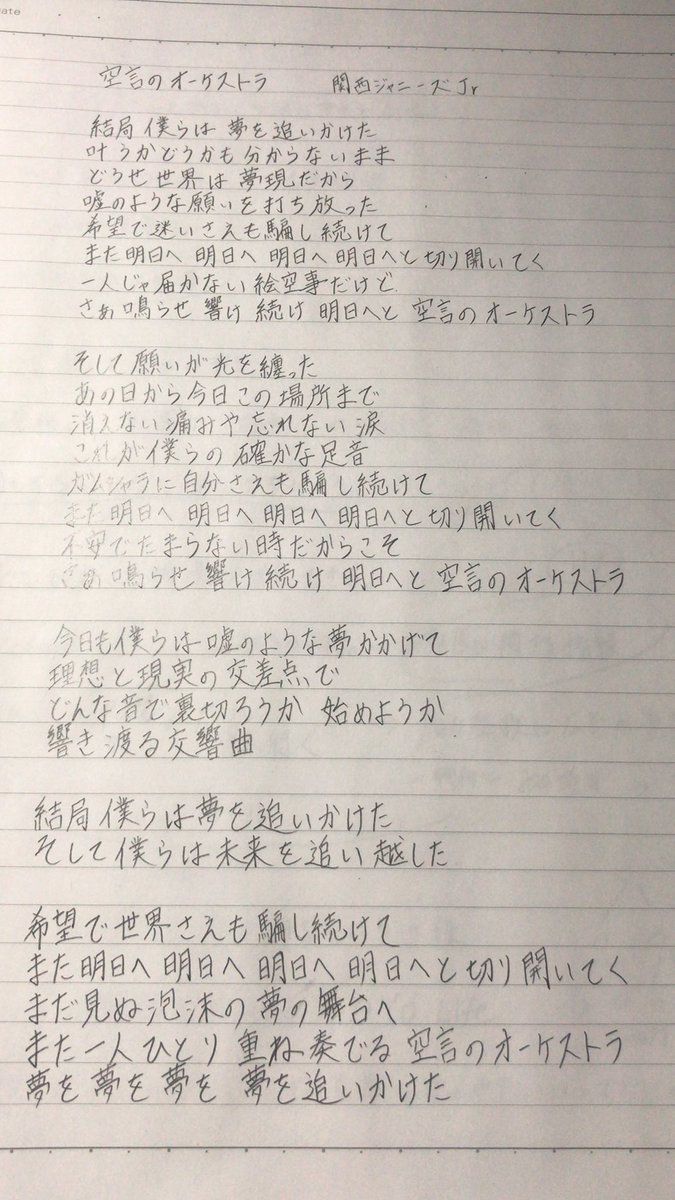 ate
空言のオーケストラ 関西ジャニーズJr
結局僕らは 夢を追いかけた
叶うかどうかも分からないまま
どうせ世界は夢現だから
嘘のような願いを打ち放った
希望で迷いさえも騙し続けて
また明日へ 明日へ 明日へ 明日へと切り開いてく
一人じゃ届かない絵空事だけど
さぁ鳴らせ 響け 続け 明日へと 空言のオーケストラ
そして願いが光を纏った
あの日から今日この場所まで
消えない痛みや忘れない涙
これが僕らの確かな足音
ガムシャラに自分さえも騙し続けて
また明日へ 明日へ 明日へ 明日へと切り開いてく
不安でたまらない時だからこそ
さぁ鳴らせ 響け 続け 明日へと 空言のオーケストラ
今日も僕らは嘘のような夢かかげて
理想と現実の交差点で
どんな音で裏切ろうか 始めようか
響き渡る交響曲
結局僕らは夢を追いかけた
そして僕らは未来を追い越した
希望で世界さえも騙し続けて
また明日へ 明日へ 明日へ 明日へと切り開いてく
まだ見ぬ泡沫の夢の舞台へ
また一人ひとり 重ね奏でる 空言のオーケストラ
夢を 夢を 夢を 夢を追いかけた